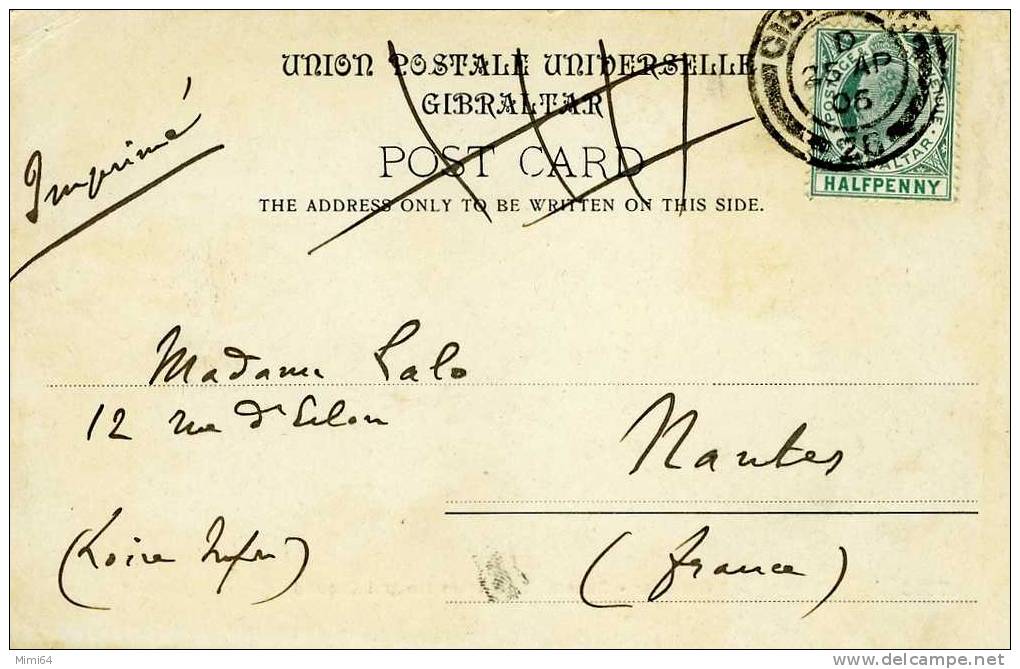 UNION POSTALE UNIVERSELLE
GIBRALTAR
POST CARD
THE ADDRESS ONLY TO BE WRITTEN ON THIS SIDE.
Imprimé
26 AP
06
26
HALFPENNY
Madame Lalo
12 rue d'Erlon
Nantes
(Loire Infre)
(France)
Mimi64
www.delcampe.net